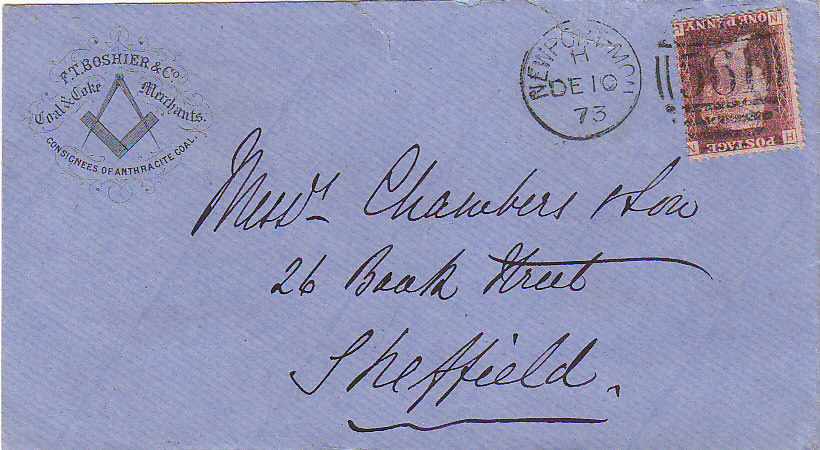 F. T. BOSHIER & Co.
Coal & Coke Merchants.
CONSIGNEES OF ANTHRACITE COAL.
NEWPORT-MON
H
DE 10
73
ONE PENNY
POSTAGE
H N
Messrs Chambers & Son
26 Bank Street
Sheffield.